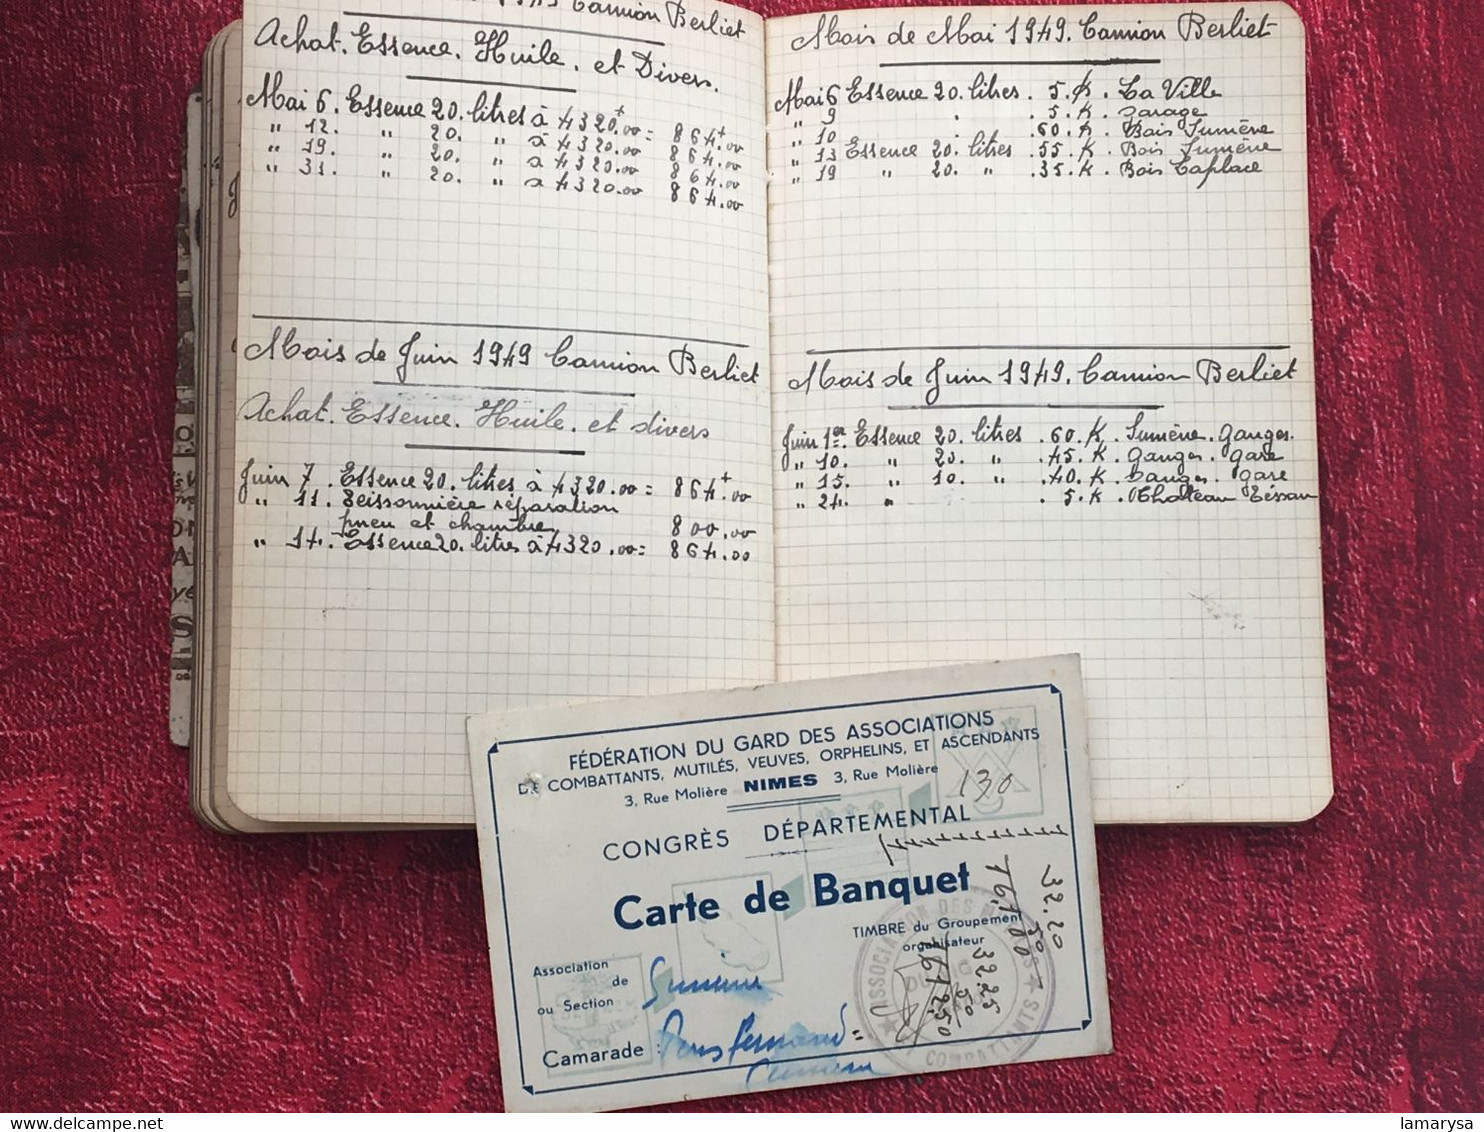 1949 Camion Berliet
Achat. Essence. Huile. et Divers.
Mai 6. Essence 20. litres à 4320.00 = 864.00
" 12. " 20. " à 4320.00 864.00
" 19. " 20. " à 4320.00 864.00
" 31. " 20. " à 4320.00 864.00
Mois de Juin 1949 Camion Berliet
Achat. Essence. Huile. et divers
Juin 7. Essence 20. litres à 4320.00 = 864.00
" 11. Teissonnière réparation
pneu et chambre 800.00
" 14. Essence 20. litres à 4320.00 = 864.00
Mois de Mai 1949. Camion Berliet
Mai 6 Essence 20. litres. 5.K. La Ville
" 9 . 5.K. Garage
" 10 . 60.K. Bois Sumène
" 13 Essence 20. litres . 55.K. Bois Sumène
" 19 " 20. " . 35.K. Bois Laplace
Mois de Juin 1949. Camion Berliet
Juin 1er Essence 20. litres . 60.K. Sumène. Ganges.
" 10. " 20. " . 45.K. Ganges. Gare
" 15. " 10. " . 40.K. Ganges. Gare
" 24. " . 5.K. Château
FÉDÉRATION DU GARD DES ASSOCIATIONS
DE COMBATTANTS, MUTILÉS, VEUVES, ORPHELINS, ET ASCENDANTS
3, Rue Molière NIMES 3, Rue Molière
130
CONGRÈS DÉPARTEMENTAL
Carte de Banquet
TIMBRE du Groupement
organisateur
Association
de
ou Section
Sumène
Camarade :
Fernand
Sumène
32.20
50
32.25
50
ASSOCIATION DES
COMBATTANTS
lamarysa